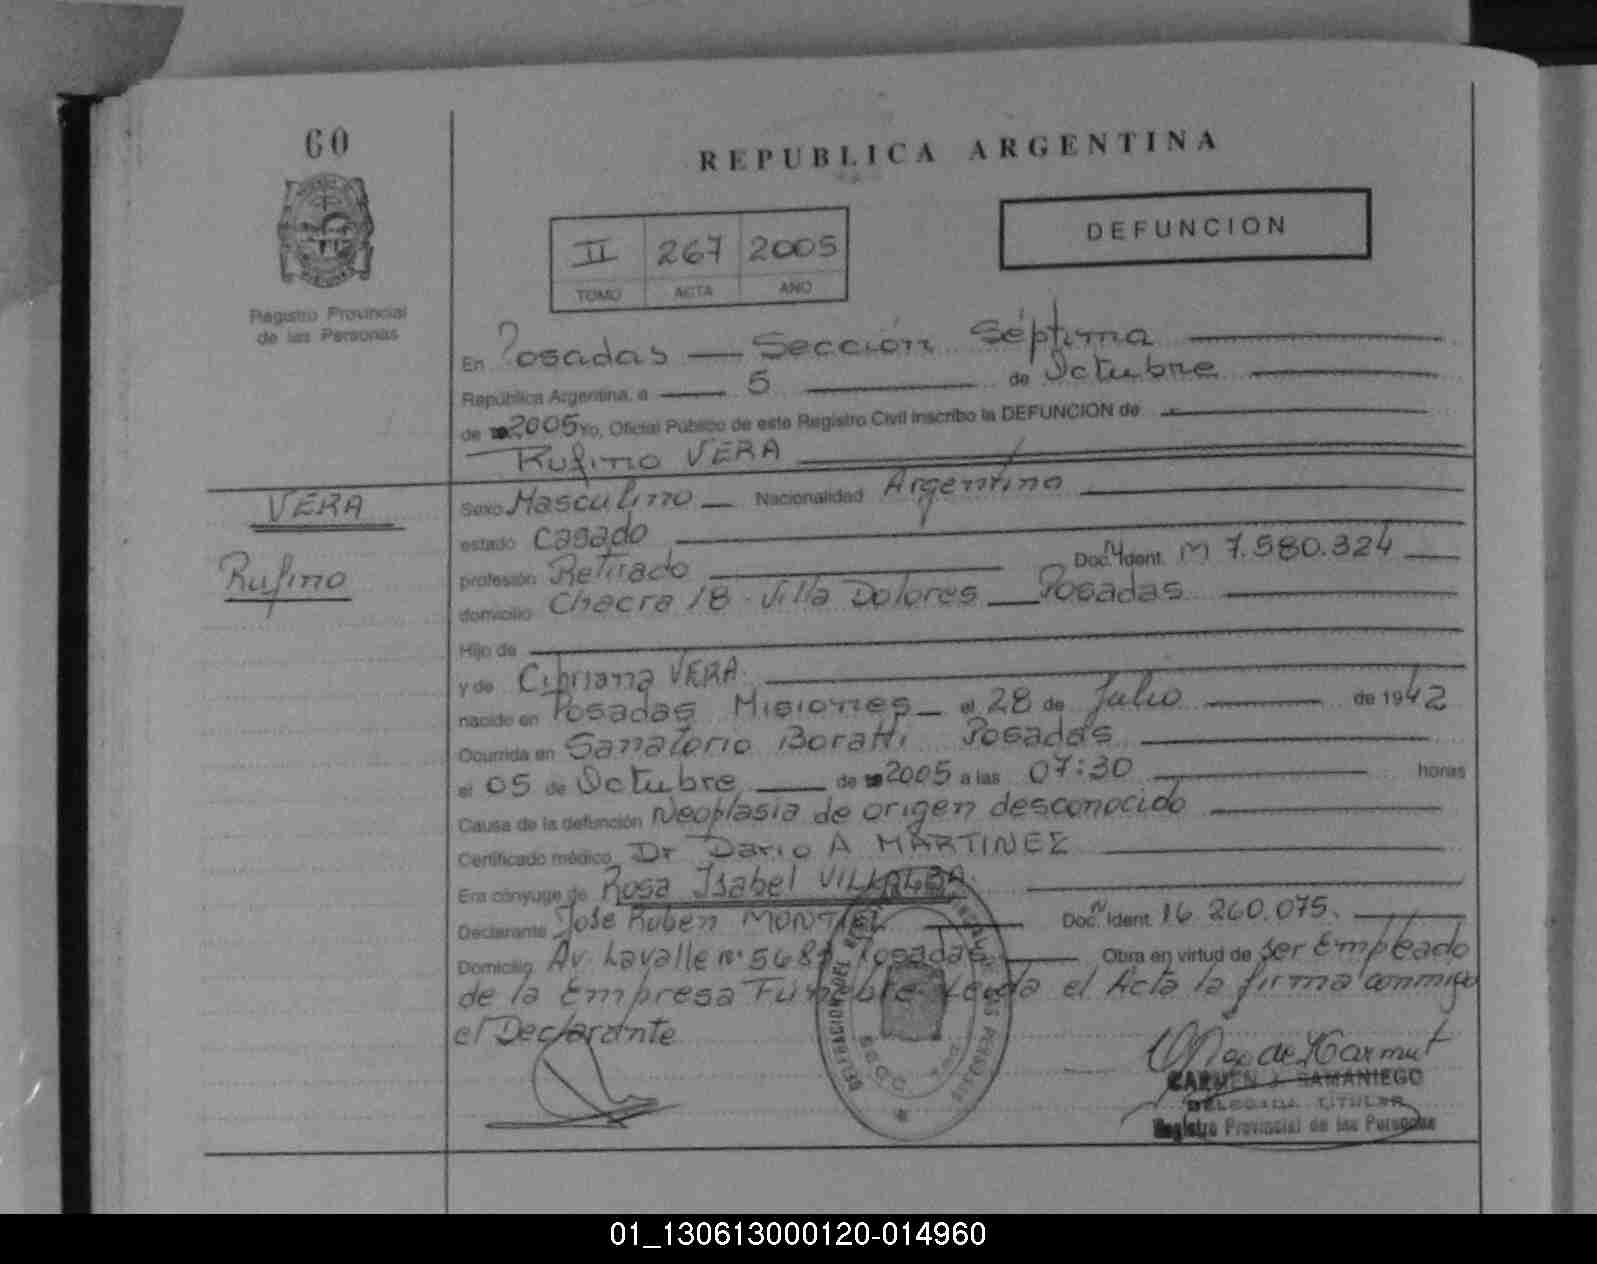 60
REPUBLICA ARGENTINA
II 267 2005
TOMO ACTA AÑO
DEFUNCION
Registro Provincial
de las Personas
En Posadas — Sección Séptima
República Argentina, a 5 de Octubre
de 2005 Yo, Oficial Público de este Registro Civil inscribo la DEFUNCION de
Rufino VERA
VERA
Rufino
Sexo Masculino Nacionalidad Argentino
estado Casado
profesión Retirado Doc. N Ident. M 7.580.324
domicilio Chacra 18 - Villa Dolores Posadas
Hijo de
y de Cipriana VERA
nacido en Posadas Misiones el 28 de Julio de 1942
Ocurrida en Sanatorio Boratti Posadas
el 05 de Octubre de 2005 a las 07:30 horas
Causa de la defunción Neoplasia de origen desconocido
Certificado médico Dr Dario A MARTINEZ
Era cónyuge de Rosa Isabel VILLALBA
Declarante Jose Ruben MONTIEL Doc. N Ident. 16 260.075.
Domicilio Av. Lavalle nº 5681 Posadas Obra en virtud de ser Empleado
de la Empresa Fúnebre Leída el Acta la firma conmigo
el Declarante
CARMEN SAMANIEGO
DELEGADA TITULAR
Registro Provincial de las Personas
01_130613000120-014960